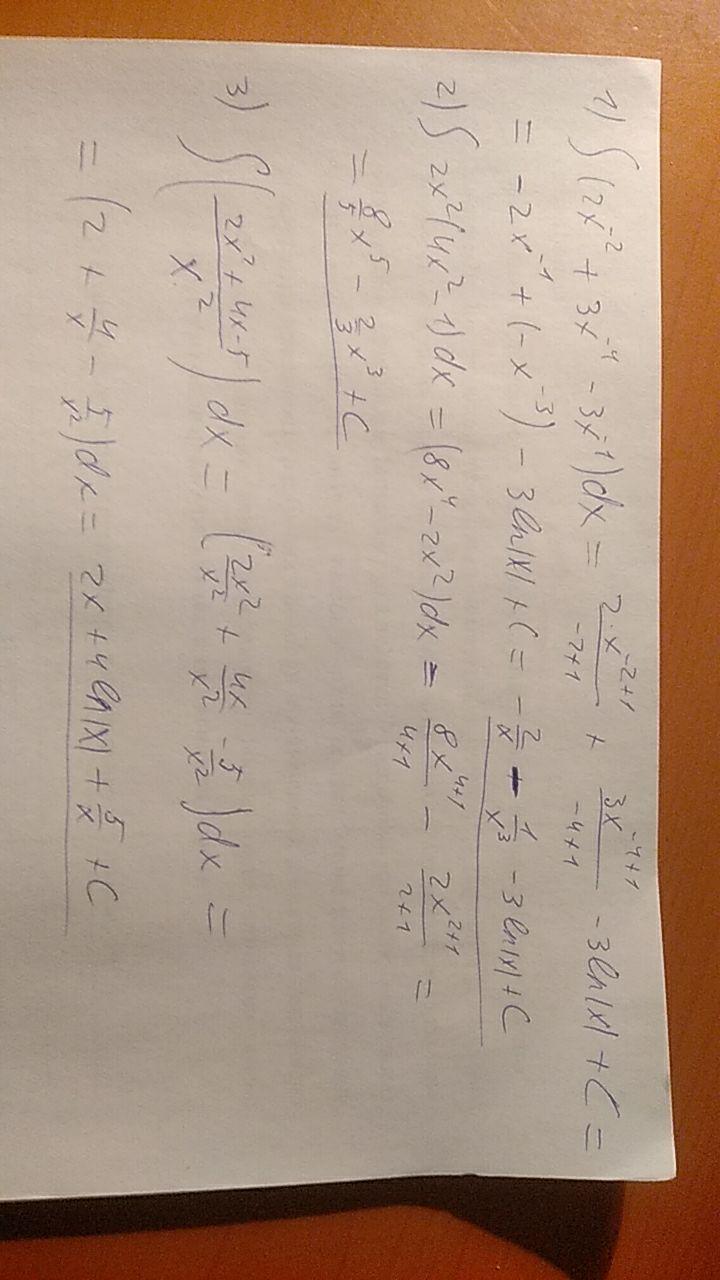 1) ∫(2x⁻² + 3x⁻⁴ - 3x⁻¹)dx = 2·x⁻²⁺¹/-2+1 + 3x⁻⁴⁺¹/-4+1 - 3ln|x| + C =
= -2x⁻¹ + (-x⁻³) - 3ln|x| + C = -2/x - 1/x³ - 3ln|x| + C
2) ∫2x²(4x²-1)dx = (8x⁴-2x²)dx = 8x⁴⁺¹/4+1 - 2x²⁺¹/2+1 =
= 8/5x⁵ - 2/3x³ + C
3) ∫(2x²+4x-5/x²)dx = (2x²/x² + 4x/x² - 5/x²)dx =
= (2 + 4/x - 5/x²)dx = 2x + 4ln|x| + 5/x + C